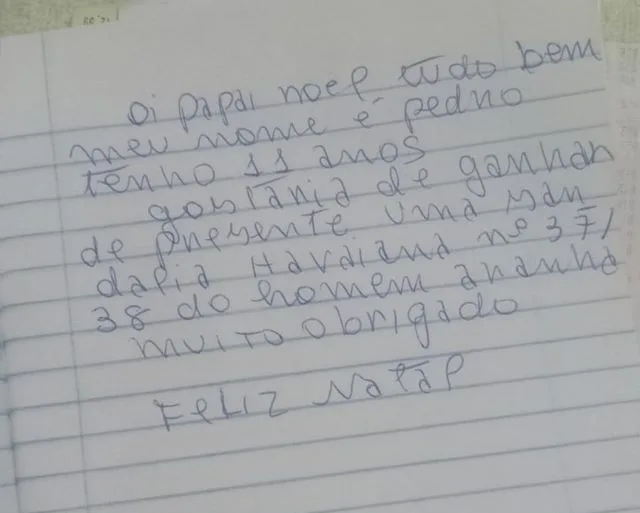 oi papai noel tudo bem
meu nome é pedno
tenho 11 anos
gostania de ganhan
de pnesente uma san
dalia Havaiana nº 37/
38 do homem ananha
muito obrigado
FeLiZ Natal